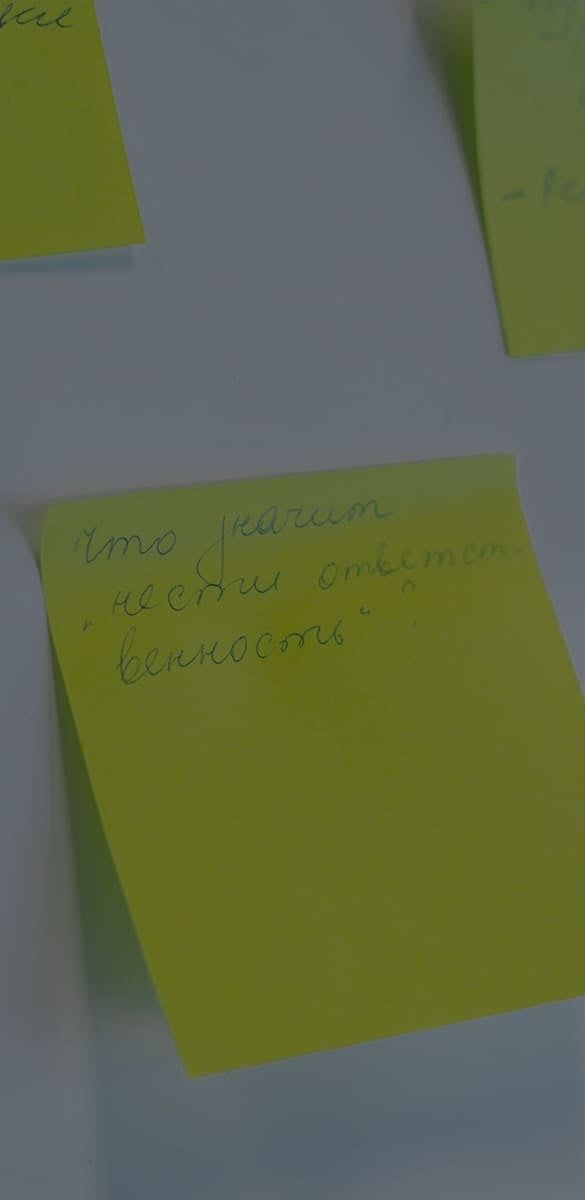 что значит
„нести ответст-
венность“ ?